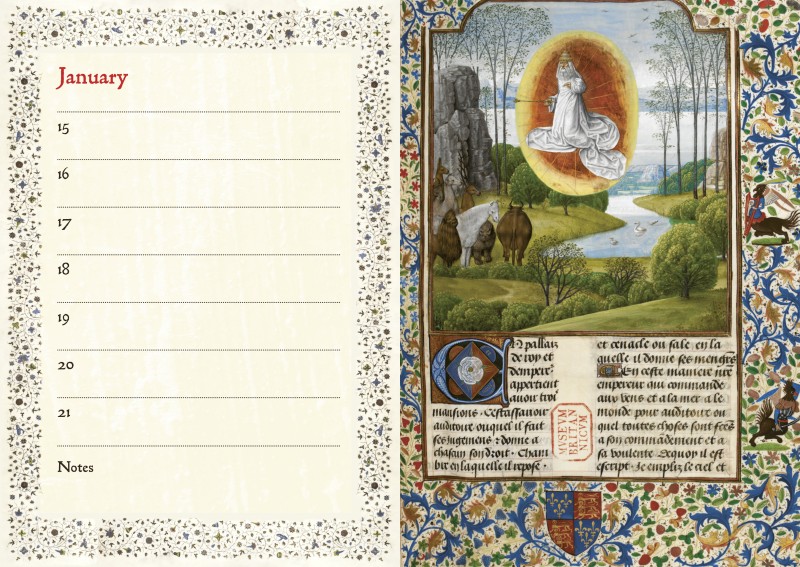 January
15
16
17
18
19
20
21
Notes
En pallaiz
de roy et
dempere
appartient
auoir troi
mansions. Cestassauoir
auditoire ouquel il fait
ses iugemens et donne a
chascun son droit. Cham
bre en laquelle il repose.
et cenacle ou sale, en la
quelle il donne ses mengrs
En ceste maniere nre
empereur qui commande
aux vens et a la mer a le
monde pour auditoire ou
quel toutes choses sont ferts
a son commandement et a
sa voulente. Dequoy il est
escript. Je emplis le ciel et
MVSEVM
BRITAN
NICVM